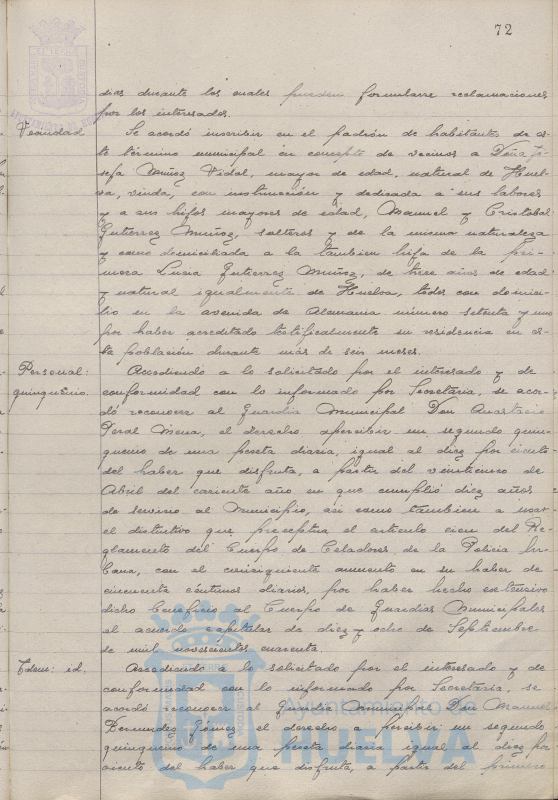 72
dias durante los cuales pueden formularse reclamaciones
por los interesados.
Vecindad
Se acordó inscribir en el padrón de habitantes de es-
te término municipal en concepto de vecinos a Doña Jo-
sefa Muñoz Vidal, mayor de edad, natural de Huel-
va, viuda, con instrucción y dedicada a sus labores
y a sus hijos mayores de edad, Manuel y Cristobal
Gutierrez Muñoz, solteros y de la misma naturaleza
y como domiciliada a la tambien hija de la pri-
mera Lucia Gutierrez Muñoz, de trece años de edad
y natural igualmente de Huelva, todos con domici-
lio en la avenida de Alemania número setenta y uno
por haber acreditado testificalmente su residencia en es-
ta población durante más de seis meses.
Personal:
quinquenio.
Accediendo a lo solicitado por el interesado y de
conformidad con lo informado por Secretaria, se acor-
dó reconocer al Guardia Municipal Don Anastacio
Peral Mena, el derecho apercibir un segundo quin-
quenio de una peseta diaria, igual al diez por ciento
del haber que disfruta, a partir del veintiuno de
Abril del corriente año en que cumplió diez años
de servicio al Municipio, asi como tambien a usar
el distintivo que preceptua el articulo cien del Re-
glamento del Cuerpo de Celadores de la Policia Ur-
bana, con el consiguiente aumento en su haber de
cincuenta céntimos diarios, por haber hecho extensivo
dicho beneficio al Cuerpo de Guardias Municipales
el acuerdo capitular de diez y ocho de Septiembre
de mil novecientos cuarenta.
Idem: id.
Accediendo a lo solicitado por el interesado y de
conformidad con lo informado por Secretaria, se
acordó reconocer al Guardia Municipal Don Manuel
Bermudez Gómez el derecho a percibir un segundo
quinquenio de una peseta diaria igual al diez por
ciento del haber que disfruta, a partir del primero
Ayuntamiento de
HUELVA